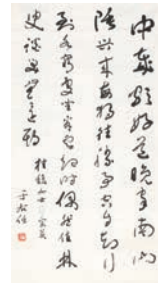 中歲頗好道晚家南山
陲興來每獨往勝事空自知行
到水窮處坐看雲起時偶然值林
叟談笑無還期
于右任